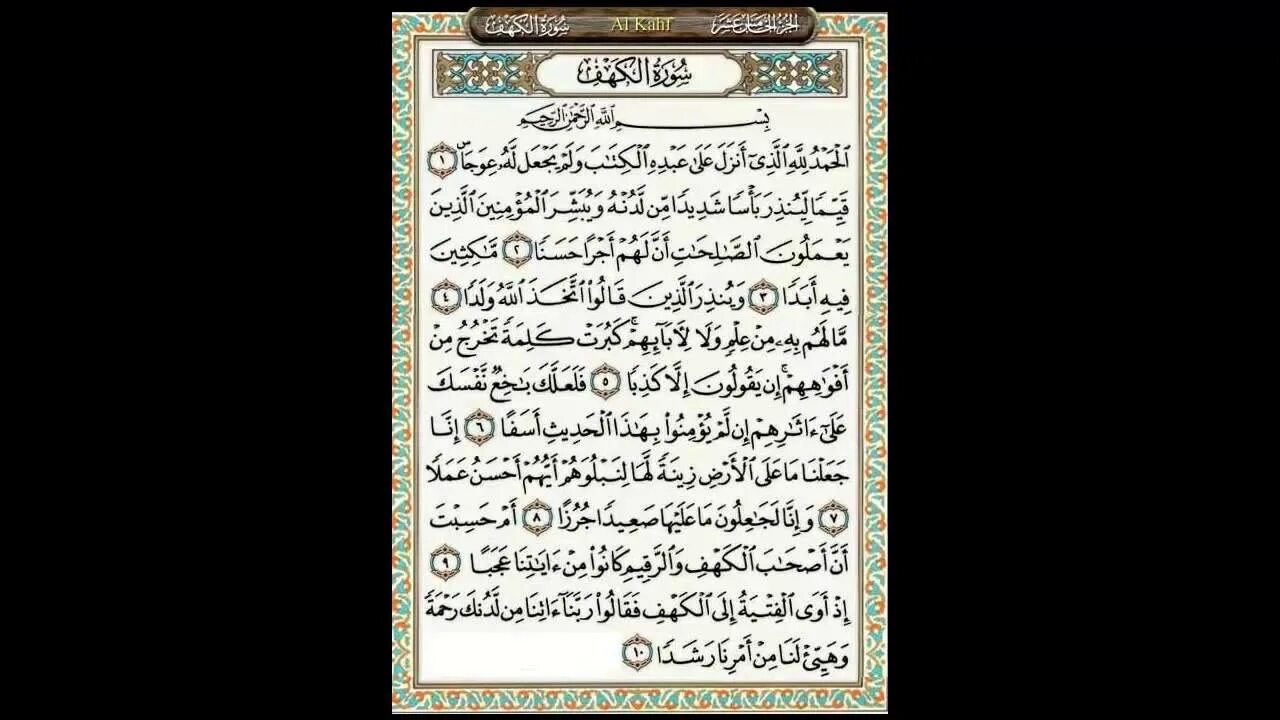 سُورَةُ الكَهْفِ Al Kahf الجزء الخامس عشر
سُورَةُ الكَهْفِ
بِسْمِ ٱللَّهِ ٱلرَّحْمَٰنِ ٱلرَّحِيمِ
ٱلْحَمْدُ لِلَّهِ ٱلَّذِىٓ أَنزَلَ عَلَىٰ عَبْدِهِ ٱلْكِتَٰبَ وَلَمْ يَجْعَل لَّهُۥ عِوَجَاۜ ١
قَيِّمًا لِّيُنذِرَ بَأْسًا شَدِيدًا مِّن لَّدُنْهُ وَيُبَشِّرَ ٱلْمُؤْمِنِينَ ٱلَّذِينَ
يَعْمَلُونَ ٱلصَّٰلِحَٰتِ أَنَّ لَهُمْ أَجْرًا حَسَنًا ٢ مَّٰكِثِينَ
فِيهِ أَبَدًا ٣ وَيُنذِرَ ٱلَّذِينَ قَالُوا۟ ٱتَّخَذَ ٱللَّهُ وَلَدًا ٤
مَّا لَهُم بِهِۦ مِنْ عِلْمٍ وَلَا لِءَابَآئِهِمْ ۚ كَبُرَتْ كَلِمَةً تَخْرُجُ مِنْ
أَفْوَٰهِهِمْ ۚ إِن يَقُولُونَ إِلَّا كَذِبًا ٥ فَلَعَلَّكَ بَٰخِعٌ نَّفْسَكَ
عَلَىٰٓ ءَاثَٰرِهِمْ إِن لَّمْ يُؤْمِنُوا۟ بِهَٰذَا ٱلْحَدِيثِ أَسَفًا ٦ إِنَّا
جَعَلْنَا مَا عَلَى ٱلْأَرْضِ زِينَةً لَّهَا لِنَبْلُوَهُمْ أَيُّهُمْ أَحْسَنُ عَمَلًا
٧ وَإِنَّا لَجَٰعِلُونَ مَا عَلَيْهَا صَعِيدًا جُرُزًا ٨ أَمْ حَسِبْتَ
أَنَّ أَصْحَٰبَ ٱلْكَهْفِ وَٱلرَّقِيمِ كَانُوا۟ مِنْ ءَايَٰتِنَا عَجَبًا ٩
إِذْ أَوَى ٱلْفِتْيَةُ إِلَى ٱلْكَهْفِ فَقَالُوا۟ رَبَّنَآ ءَاتِنَا مِن لَّدُنكَ رَحْمَةً
وَهَيِّئْ لَنَا مِنْ أَمْرِنَا رَشَدًا ١٠